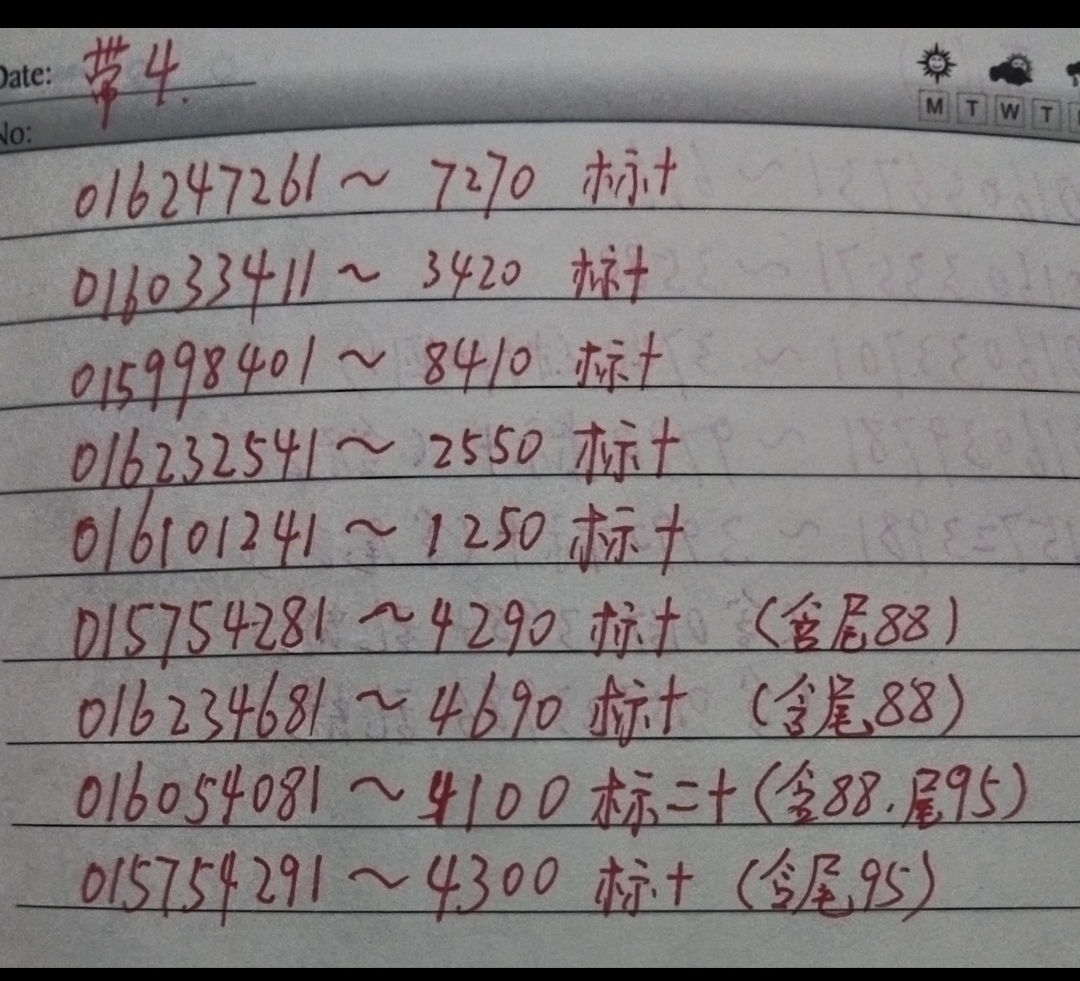 Date: 带4.
M T W T
No:
016247261~7270 标十
016033411~3420 标十
015998401~8410 标十
016232541~2550 标十
016101241~1250 标十
015754281~4290 标十 (含尾88)
016234681~4690 标十 (含尾88)
016054081~4100 标二十(含88.尾95)
015754291~4300 标十 (含尾95)